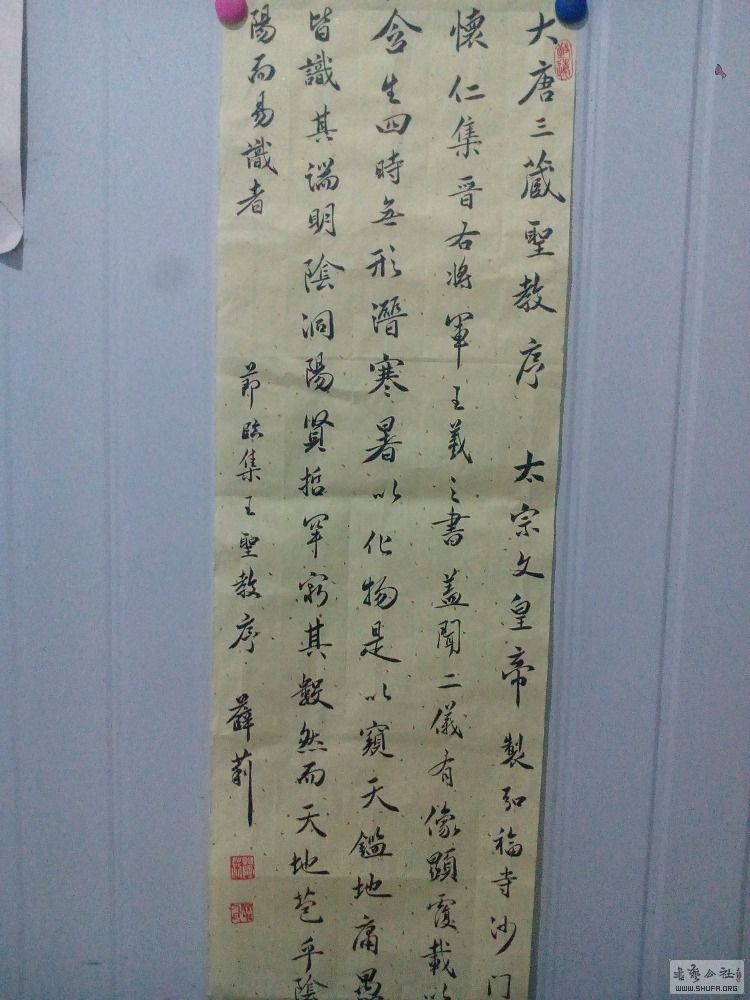 大唐三蔵聖教序 太宗文皇帝製弘福寺沙门
懐仁集晋右将軍王羲之書蓋聞二儀有像顕覆載以
含生四時無形潜寒暑以化物是以窺天鑑地庸愚
皆識其端明陰洞陽賢哲罕窮其數然而天地苞乎陰
陽而易識者
節臨集王聖教序 薛莉
書藝公社
WWW.SHUFA.ORG